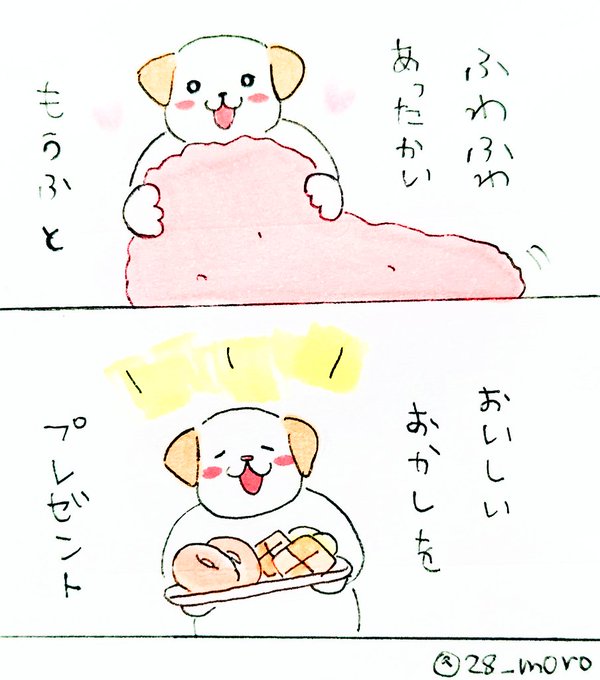 ふわふわ
あったかい
もうふと
おいしい
おかしを
プレゼント
@28_moro